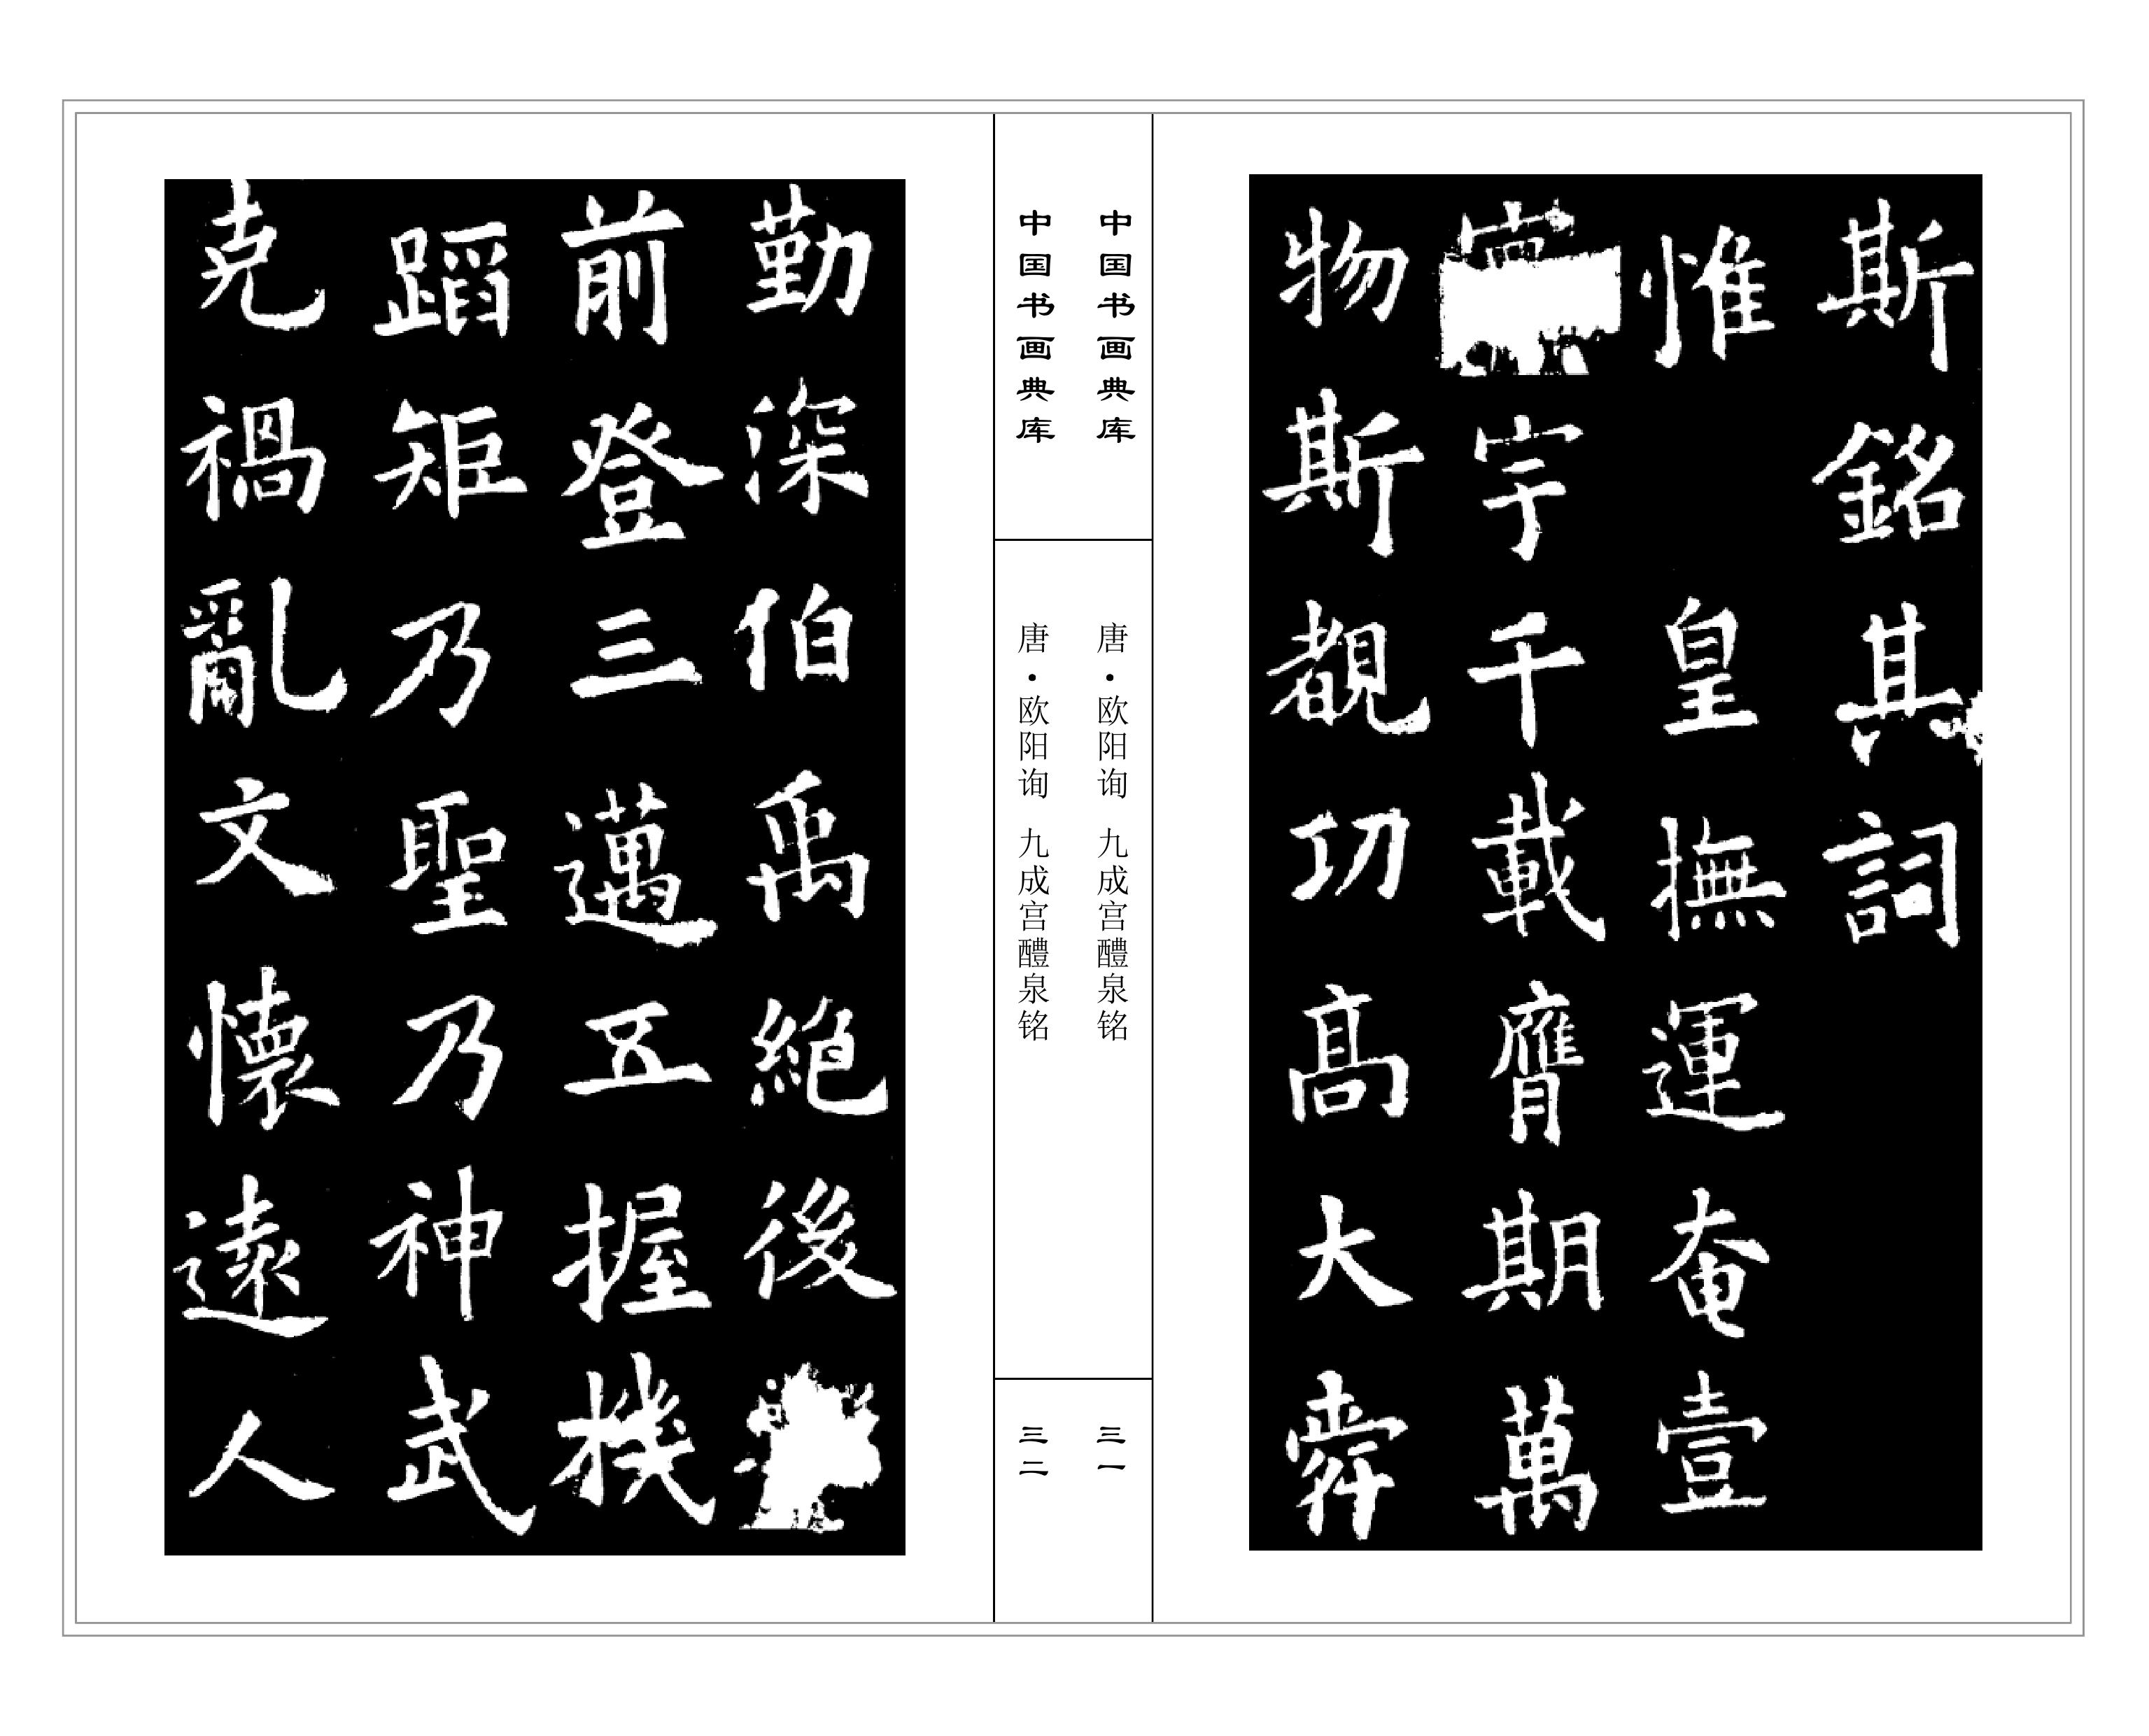 斯銘其詞
惟皇撫運奄壹
宇千載膺期萬
物斯覩功高大舜
中国书画典库
唐·欧阳询 九成宫醴泉铭
三一
中国书画典库
唐·欧阳询 九成宫醴泉铭
三二
勤深伯禹絕後
前登三邁五握機
蹈矩乃聖乃神武
克禍亂文懷遠人